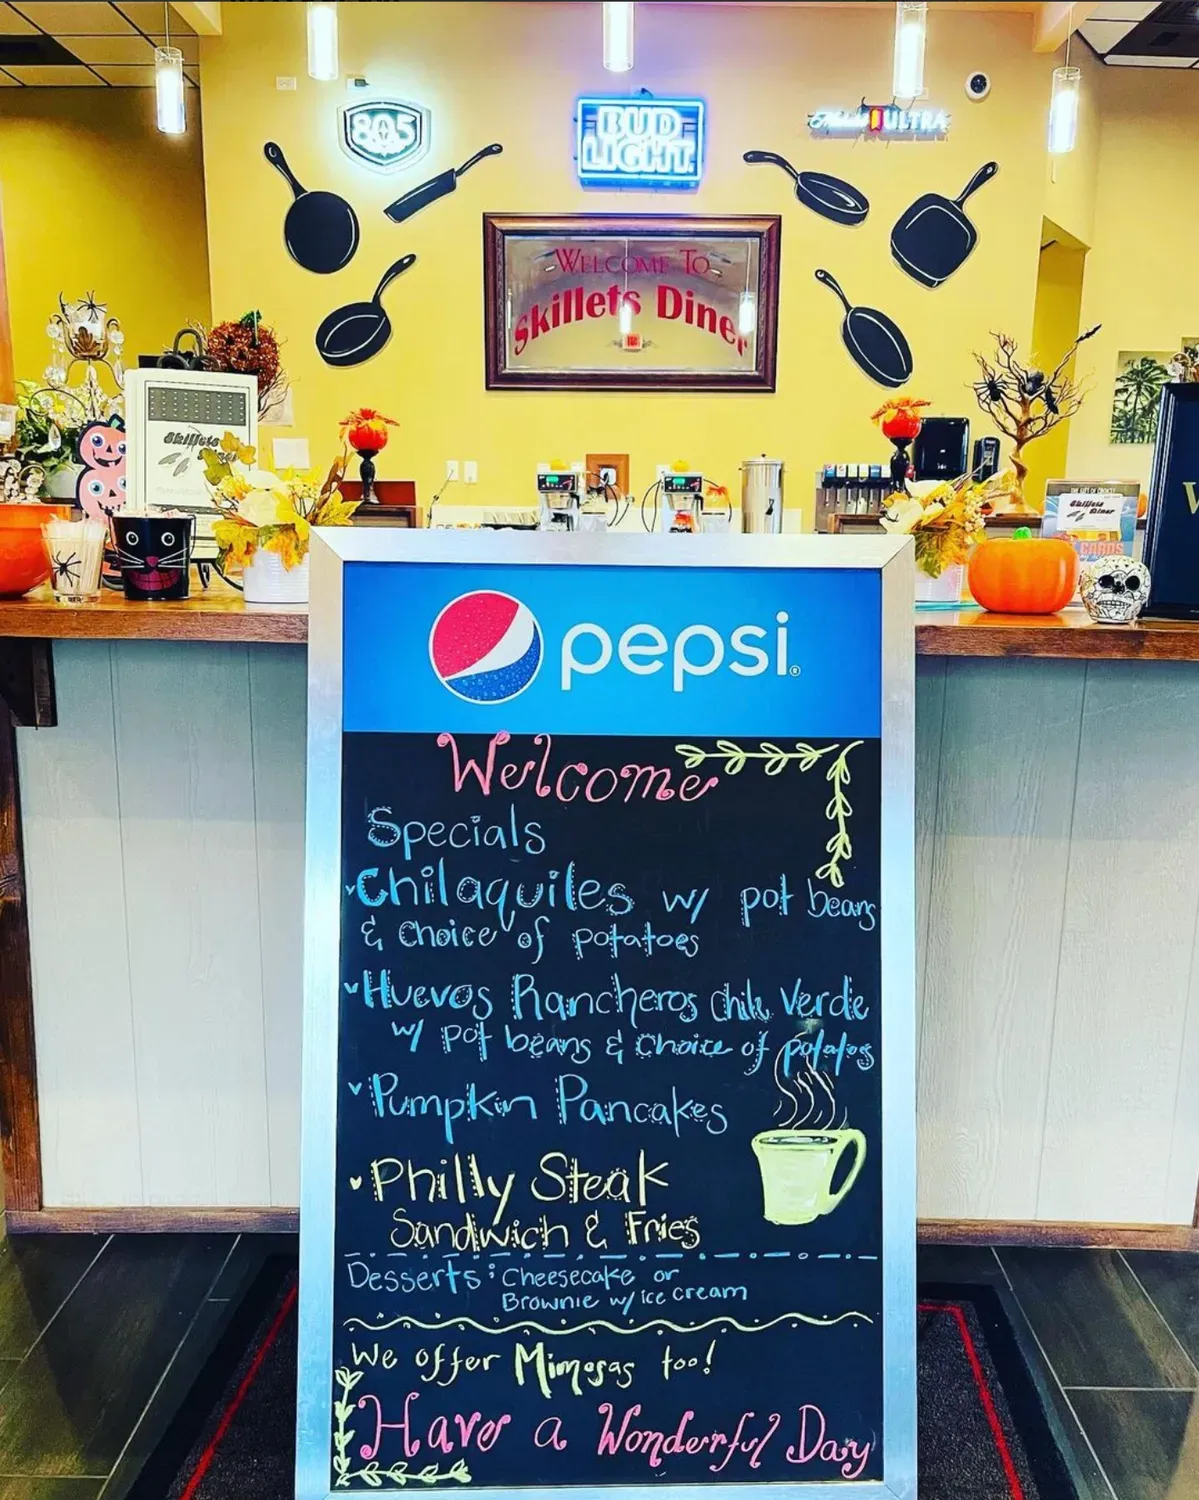 805
BUD
LIGHT
ULTRA
WELCOME TO
Skillets Diner
Skillets
Skillets
Diner
CARDS
W
pepsi
Welcome
Specials
Chilaquiles w/ pot beans
& choice of potatoes
Huevos Rancheros chile Verde
w/ pot beans & choice of potatos
Pumpkin Pancakes
Philly Steak
Sandwich & Fries
Desserts: Cheesecake or
Brownie w/ ice cream
We offer Mimosas too!
Have a Wonderful Day